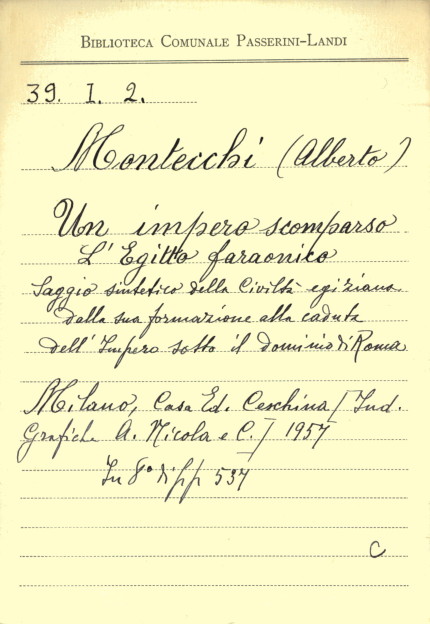 BIBLIOTECA COMUNALE PASSERINI-LANDI
39. I. 2.
Montecchi (Alberto)
Un impero scomparso
L'Egitto faraonico
Saggio sintetico della Civiltà egiziana
dalla sua formazione alla caduta
dell'Impero sotto il dominio di Roma
Milano, Casa Ed. Ceschina [Ind.
Grafiche A. Nicola e C.] 1957
In 8° di pp 537
C